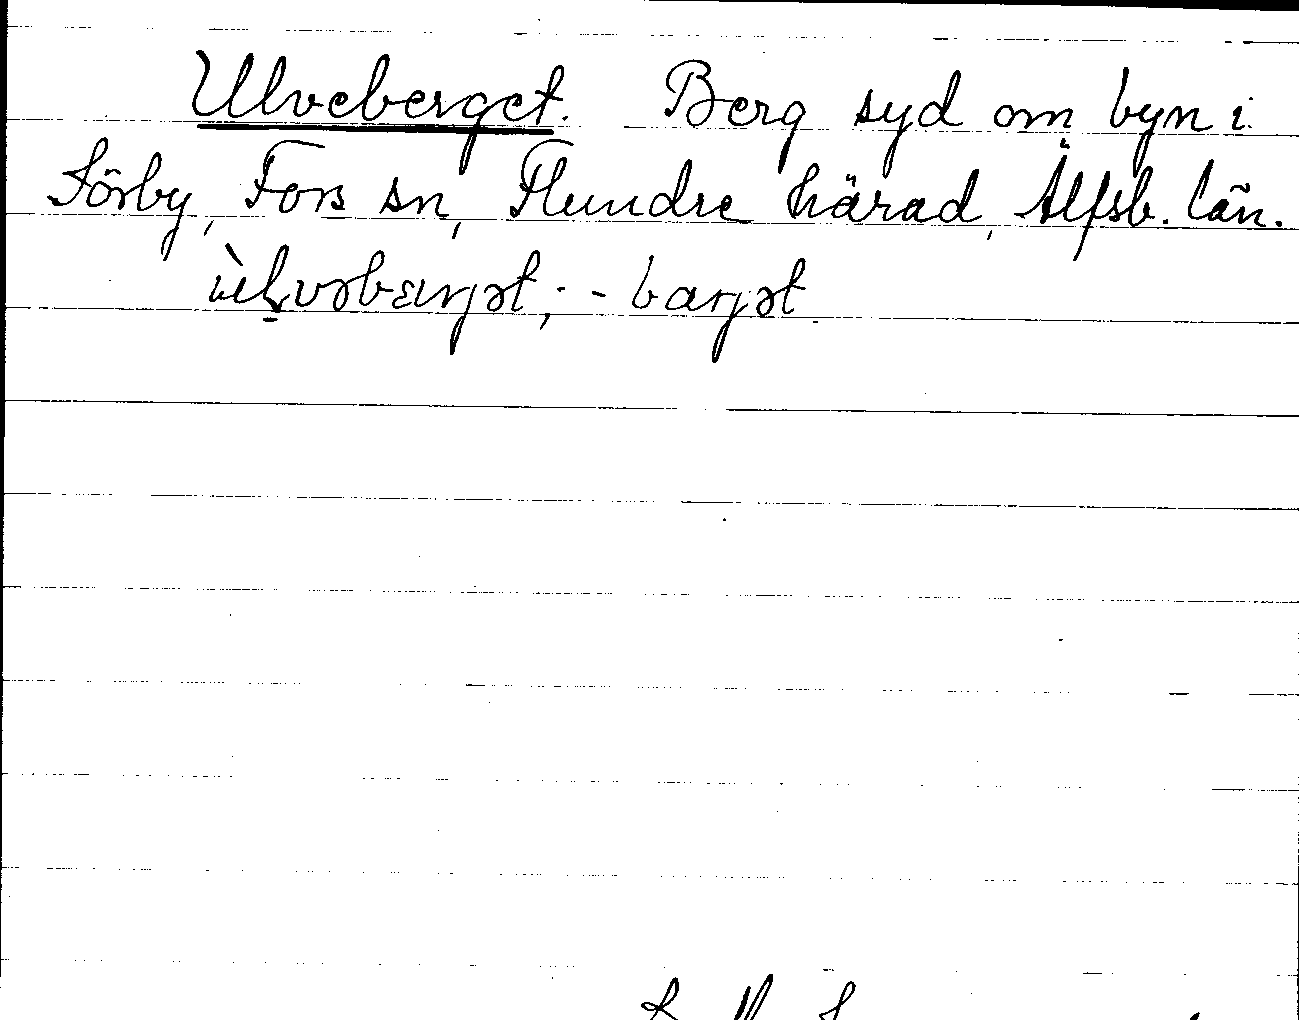 Ulveberget. Berg syd om byn i
Sörby, Fors sn, Flundre härad, Älfsb. län.
ùlvəbærjət, - barjət